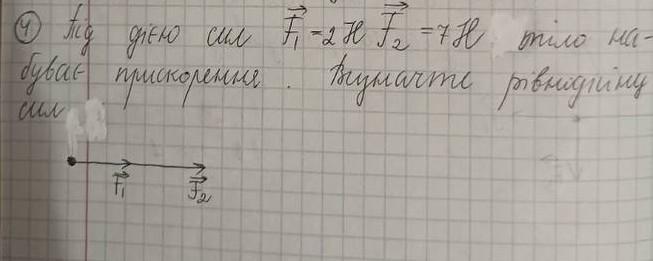 ④ Під дією сил F₁=2Н F₂=7Н тіло на-
буває прискорення. Визначте рівнодійну
сил
F₁ F₂